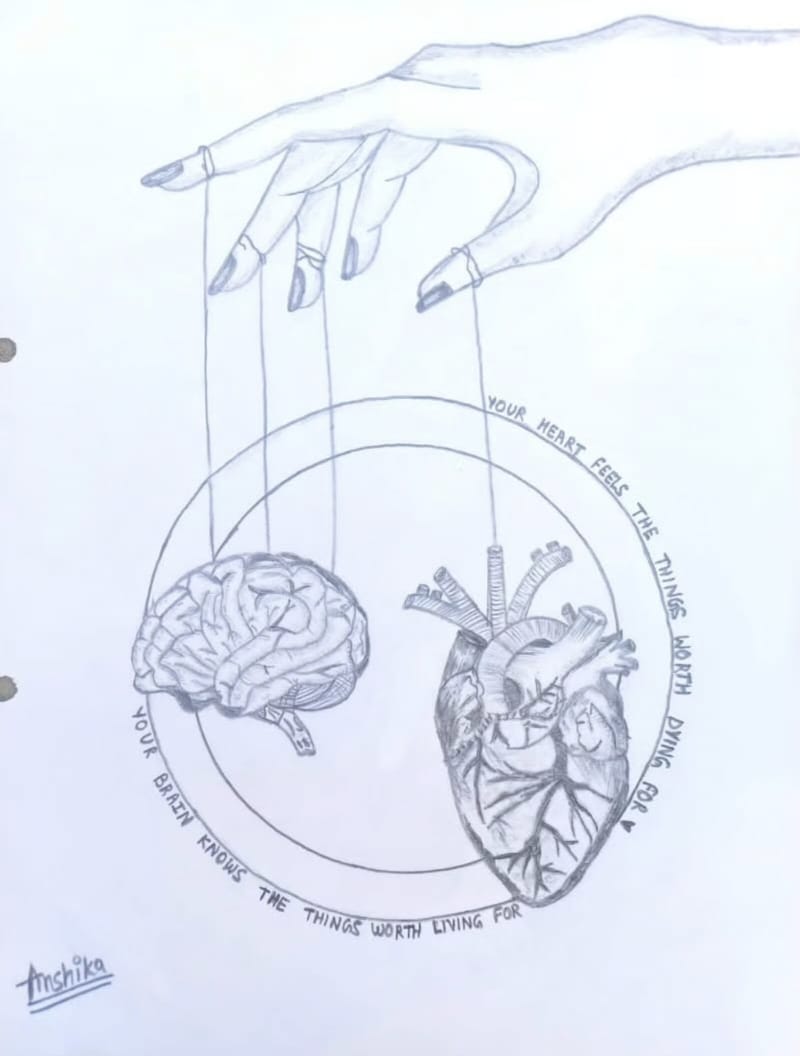 YOUR HEART FEELS THE THINGS WORTH DYING FOR
YOUR BRAIN KNOWS THE THINGS WORTH LIVING FOR
Anshika